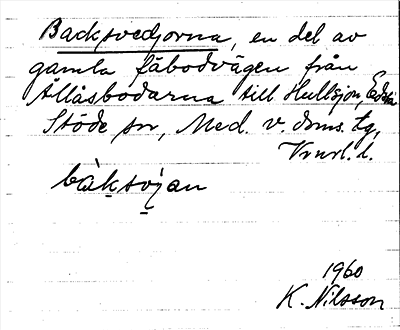 Backsvedjorna, en del av
gamla fäbodvägen från
Allåsbodarna till Hullsjön,
Stöde sn, Med. v. doms. tg,
Vnrl. l.
bàksv̀jan
1960
K. Nilsson